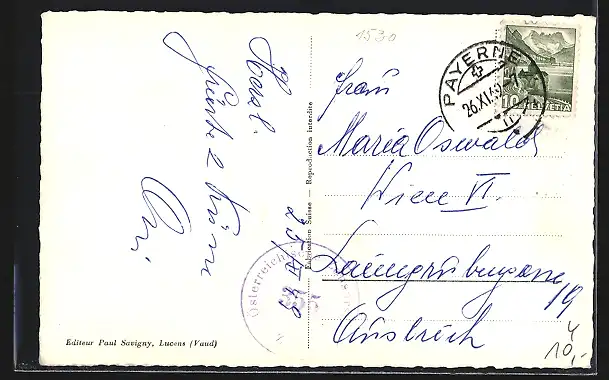 1530
Herzl.
Grüsse & Küsse
25/XI 49
Editeur Paul Savigny, Lucens (Vaud)
Fabrication Suisse — Reproduction interdite
Österreichische
PAYERNE
26.XI.49
10 HELVETIA
Frau
Maria Oswald
Wien VI.
Laimgrubengasse
19
Ausbrich
4
10,-